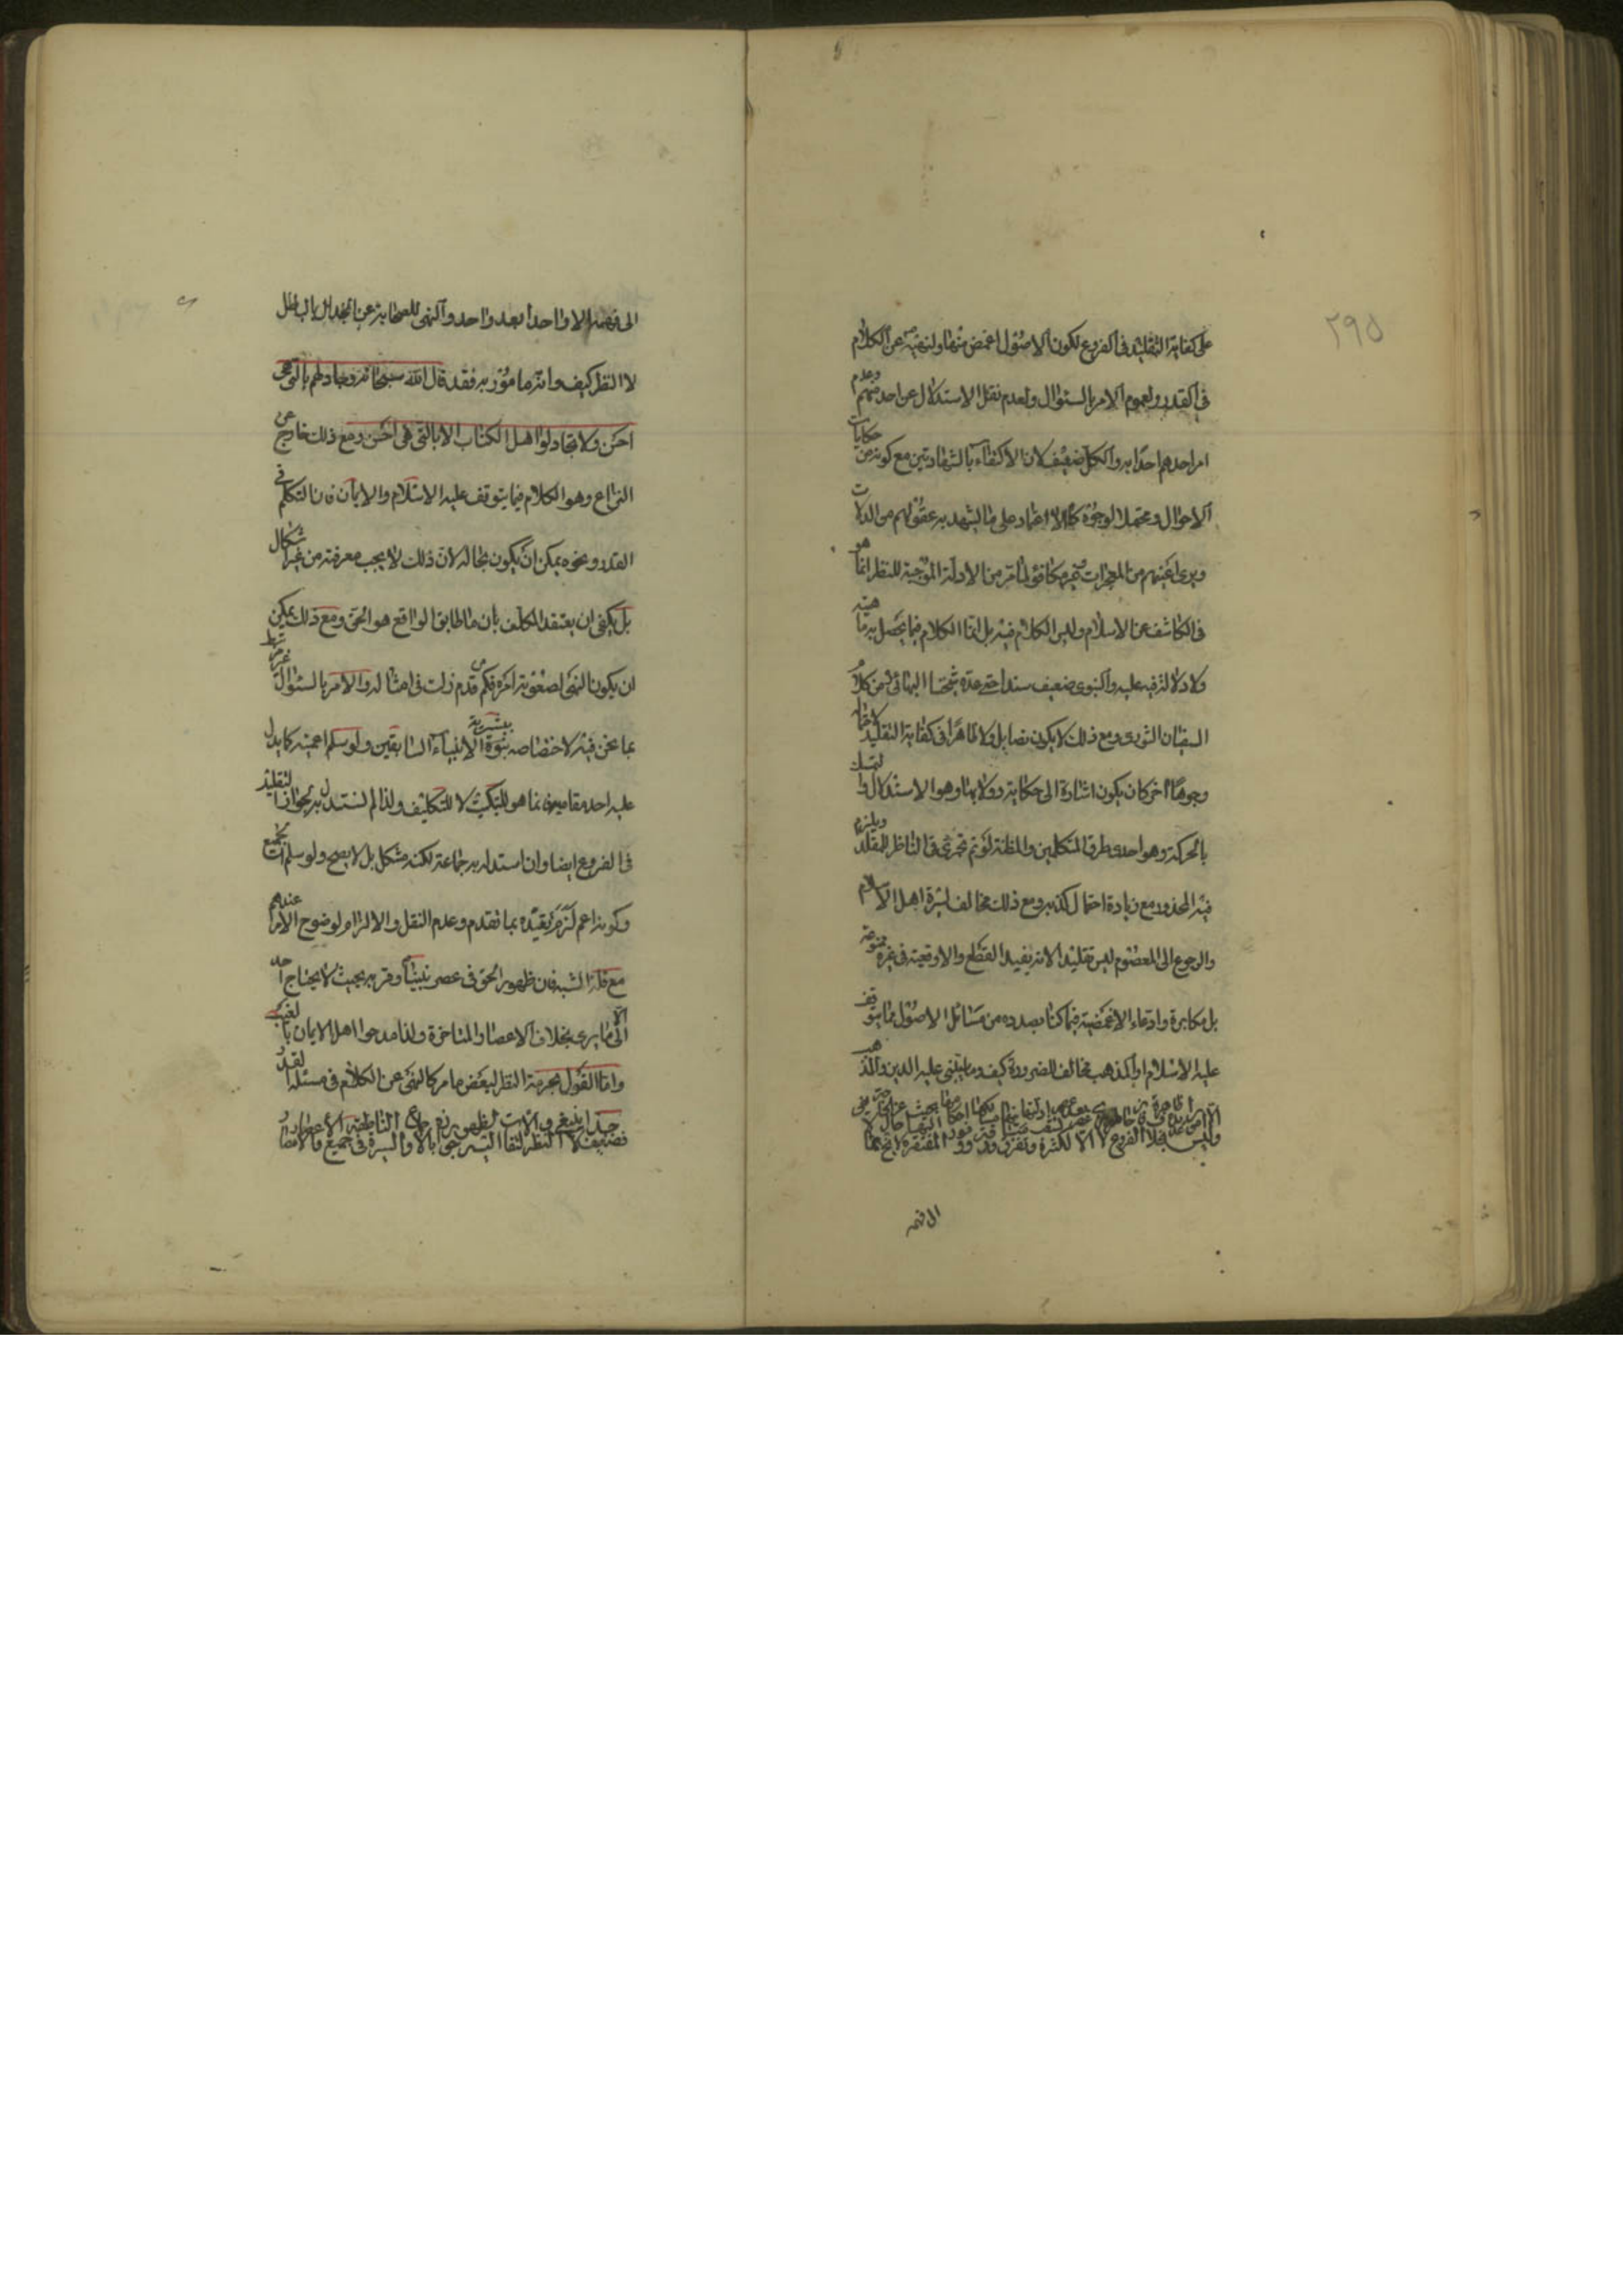 ٢٩٥
على كفاية التقليد في الفروع لكون الاصول اغمض منها ولنهيه عن الكلام
في القدر ولعموم الامر بالسئوال ولعدم نقل الاستدلال عن احد منهم وعدم
امر احدهم احدا به والكل ضعيف لان الاكتفاء بالشهادتين مع كونه من حكايات
الاحوال ومحتمل الوجوه كالاعتماد على ما يشهد به عقولهم من الدلالات
ويرى اعينهم من المعجرات غير مكافؤ لما مر من الادلة الموجبة للنظر انما هو
في الكاشف عن الاسلام وليس الكلام فيه بل انما الكلام فيما يحصل به ماهيته
ولا دلالة فيه عليه والنبوى ضعيف سندا حتى عده شيخنا البهائى من كلام
السفيان الثورى ومع ذلك لا يكون نصا بل ولا ظاهرا في كفاية التقليد لاحتماله
وجوها اخر كان يكون اشارة الى حكاية دولابها وهو الاستدلال والتمسك
بالحركة وهو احدى طرق المتكلمين والمظنة لو تم تجرى في الناظر للمقلد ويلزم
فيه المحذور مع زيادة احتمال كذبه ومع ذلك مخالف لسيرة اهل الاسلام
والرجوع الى المعصوم ليس تقليدا لانه يفيد القطع والاوقعية في غيره ممنوعة
بل مكابرة وادعاء الاغمضية فيما كنا بصدده من مسائل الاصول مما يتوقف
عليه الاسلام او المذهب مخالف للضرورة كيف وما يبتنى عليه الدين والمذهب
الى فهمه
الى فهمه الا واحدا بعد واحد والنهى للصحابة عن الجدال بالباطل
لا النظر كيف وانه مامور به فقد قال الله سبحانه وجادلهم بالتى هى
احسن ولا تجادلوا اهل الكتاب الا بالتى هى احسن ومع ذلك خارج عن
النزاع وهو الكلام فيما يتوقف عليه الاسلام والايمان فان التكلم في
القدر ونحوه يمكن ان يكون بحاله لان ذلك لا يجب معرفته من غير اشكال
بل يكفى ان يعتقد المكلف بان ما طابق الواقع هو الحق ومع ذلك يمكن
ان يكون النهى لصعوبة امره فكم من قدم زلت في امثاله والامر بالسئوال غير مرتبط
بما نحن فيه لاختصاصه بنبوة الانبياء السابقين ولو سلم اعميته كما يدل
عليه احد مقاميه فانما هو للتبكيت لا للتكليف ولذا لم نستدل به لجواز التقليد
في الفروع ايضا وان استدل به جماعة لكنه مشكل بل لا يصح ولو سلم الجميع
وكونه اعم لزم تقييده بما تقدم وعدم النقل والالزام لوضوح الامر عندهم
مع قلة الشبه فان ظهور الحق في عصر نبينا وقربه بحيث لا يحتاج احد
الا الى ما يرى بخلاف الاعصار المتاخرة ولذا مدحوا اهل الايمان بالغيب
واما القول بحرمة النظر لبعض ما مر كالنهى عن الكلام في مسئلة القدر